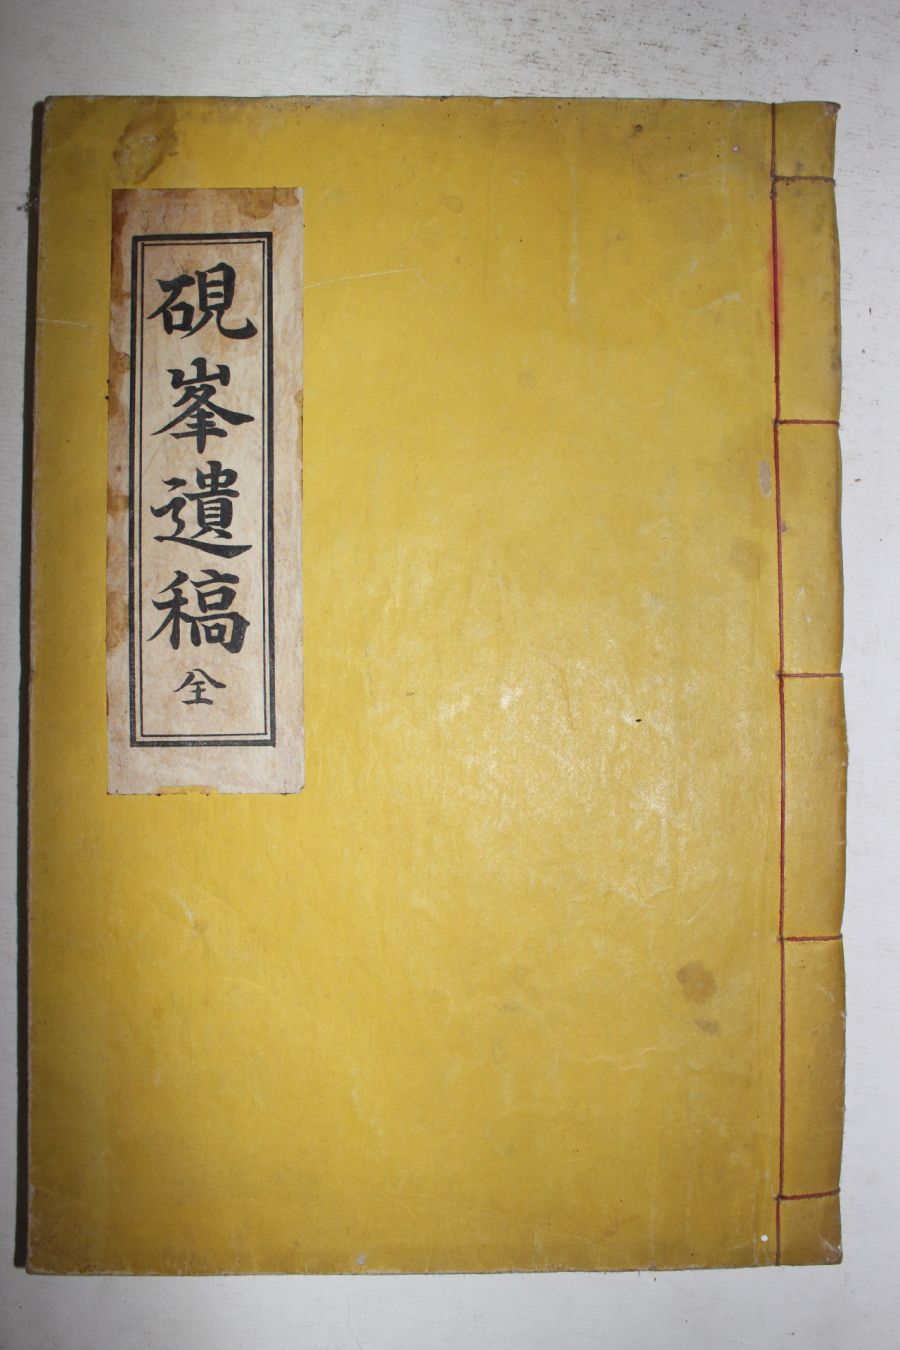 硯峯遺稿全